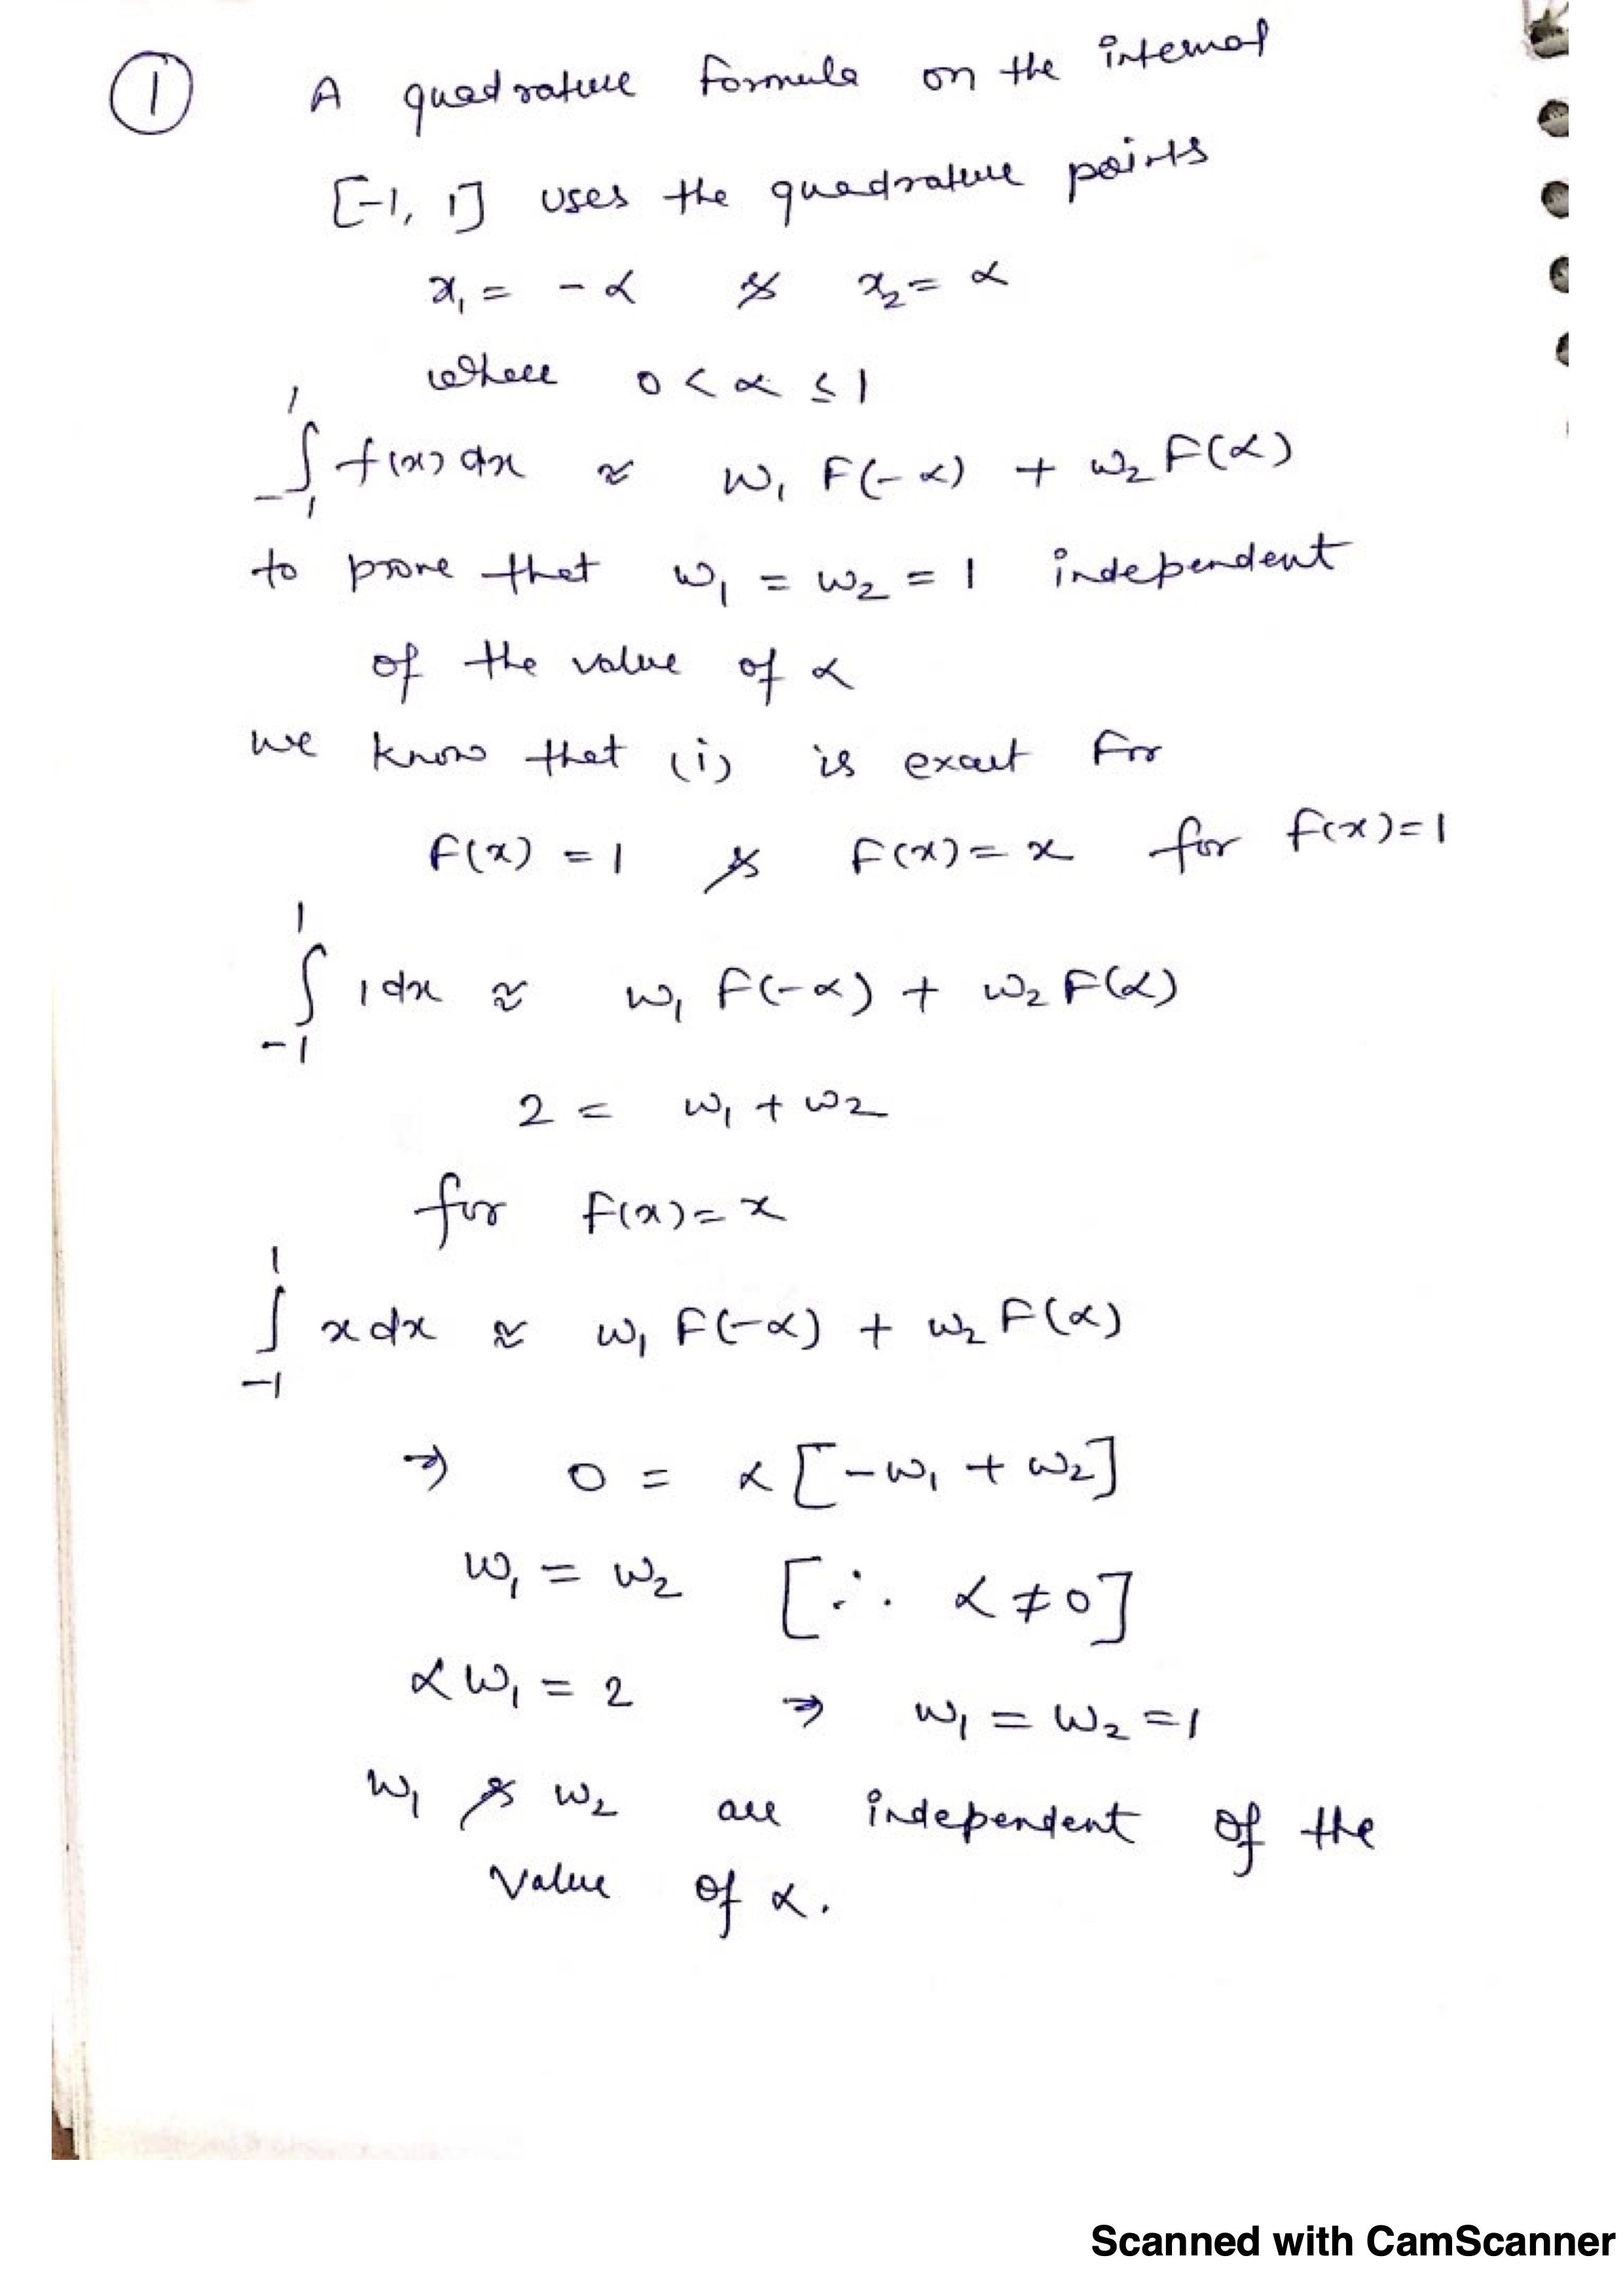 ① A quadrature formula on the interval
[-1, 1] uses the quadrature points
x₁ = -α & x₂ = α
where 0 < α ≤ 1
∫₋₁¹ f(x) dx ≈ w₁ F(-α) + w₂ F(α)
to prove that w₁ = w₂ = 1 independent
of the value of α
we know that (i) is exact for
F(x) = 1 & F(x) = x for f(x)=1
∫₋₁¹ 1 dx ≈ w₁ F(-α) + w₂ F(α)
2 = w₁ + w₂
for F(x) = x
∫₋₁¹ x dx ≈ w₁ F(-α) + w₂ F(α)
⇒ 0 = α [-w₁ + w₂]
w₁ = w₂ [∴ α ≠ 0]
αw₁ = 2 ⇒ w₁ = w₂ = 1
w₁ & w₂ are independent of the
value of α.
Scanned with CamScanner